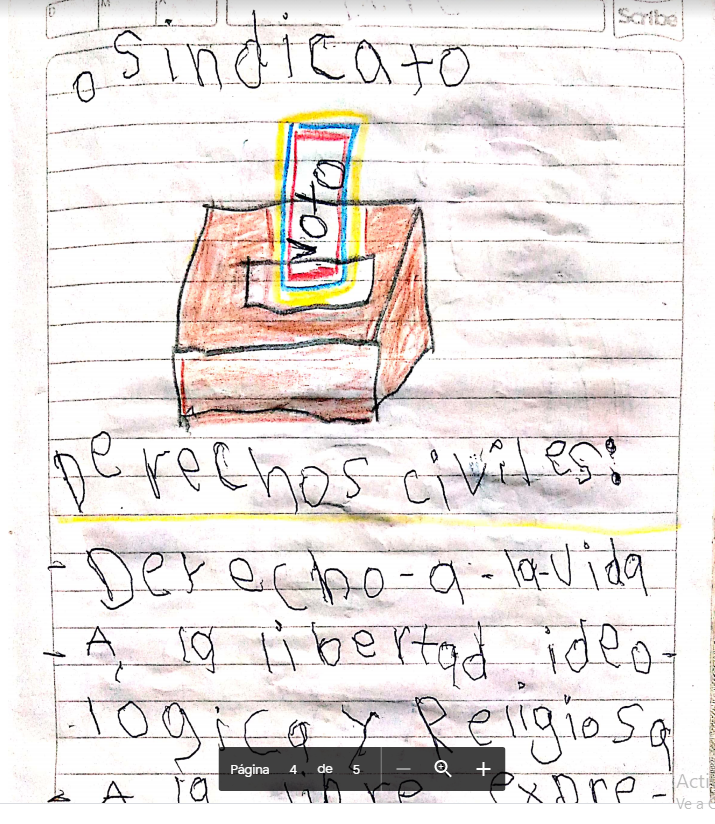 Scribe
o sindicato
voto
Derechos civiles:
- Derecho-a-la-vida
- A, la libertad ideo-
-logica y Religiosa
- A la libre expre-
Página 4 de 5
Acti
Ve a C